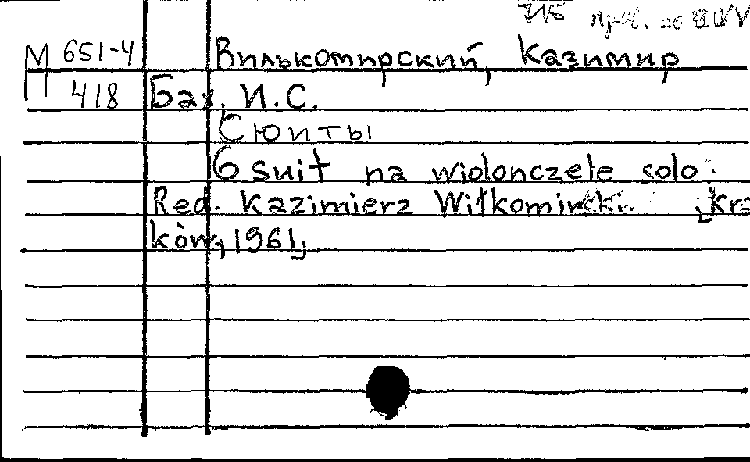 М 651-4 Вилькомирский, Казимир
418 Бах. И.С.
Сюиты
6 suit na wiolonczele solo.
Red. Kazimierz Wiłkomirski. [Kra
ków, 1961]